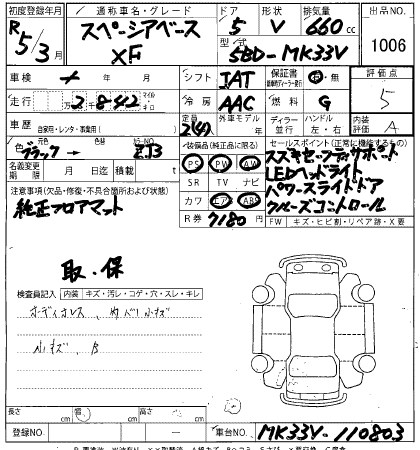 初度登録年月 通称車名・グレード ドア 形状 排気量 出品NO.
R 5/3月 スペーシアベース XF 5 V 660cc 1006
型式 5BD-MK33V
車検 年 月 シフト IAT 保証書 有・無 評価点
走行 2842 冷房 AAC 燃料 G 5
車歴 自家用・レンタ・事業用( ) 定員 2(4) 外車モデル 年 ディーラー 並行 ハンドル 左・右 内装評価 A
色 ブラック → 元色 色替 カラーNO. ZJ3
装備品(純正品に限る) セールスポイント(正常に機能するもの)
名義変更期限 月 日 積載 t
PS PW AW
SR TV ナビ
カワ エアB ABS
R券 7180円
スズキセーフティサポート
LEDヘッドライト
パワースライドドア
クルーズコントロール
注意事項(欠品・修復・不具合箇所および状態)
純正フロアマット
取・保
FW キズ・ヒビ割・リペア跡・X要
検査員記入 内装 キズ・汚レ・コゲ・穴・スレ・キレ
小キズ、B
長さ cm 幅 cm 高さ cm
登録NO. 車台NO. MK33V-110803